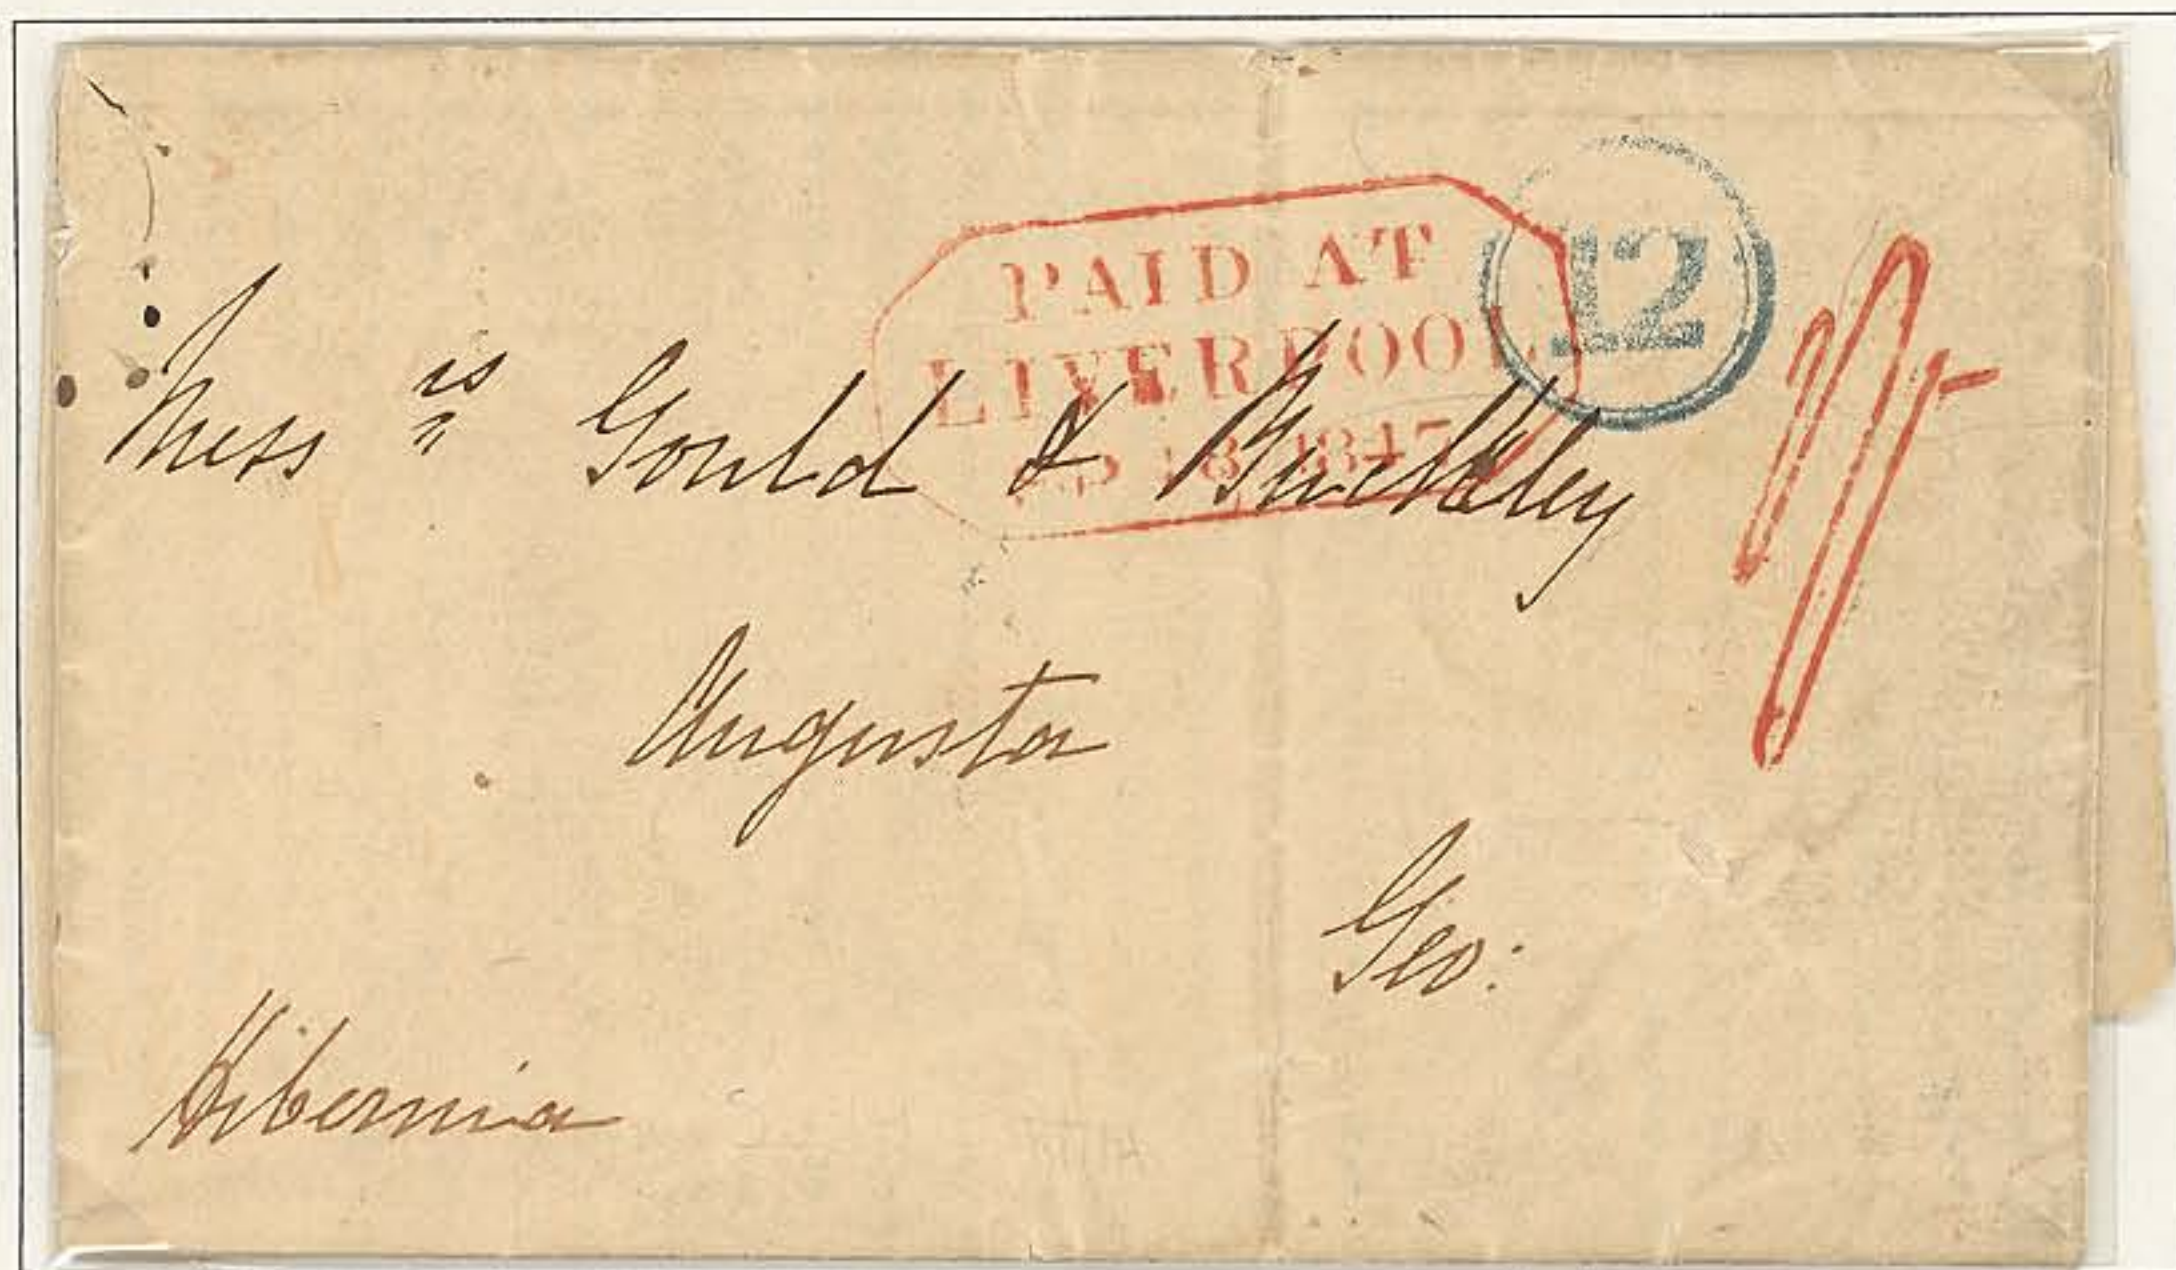 PAID AT
LIVERPOOL
SP 18 1847
12
1/-
Messrs Gould & Buckley
Augusta
Geo:
Hibernia